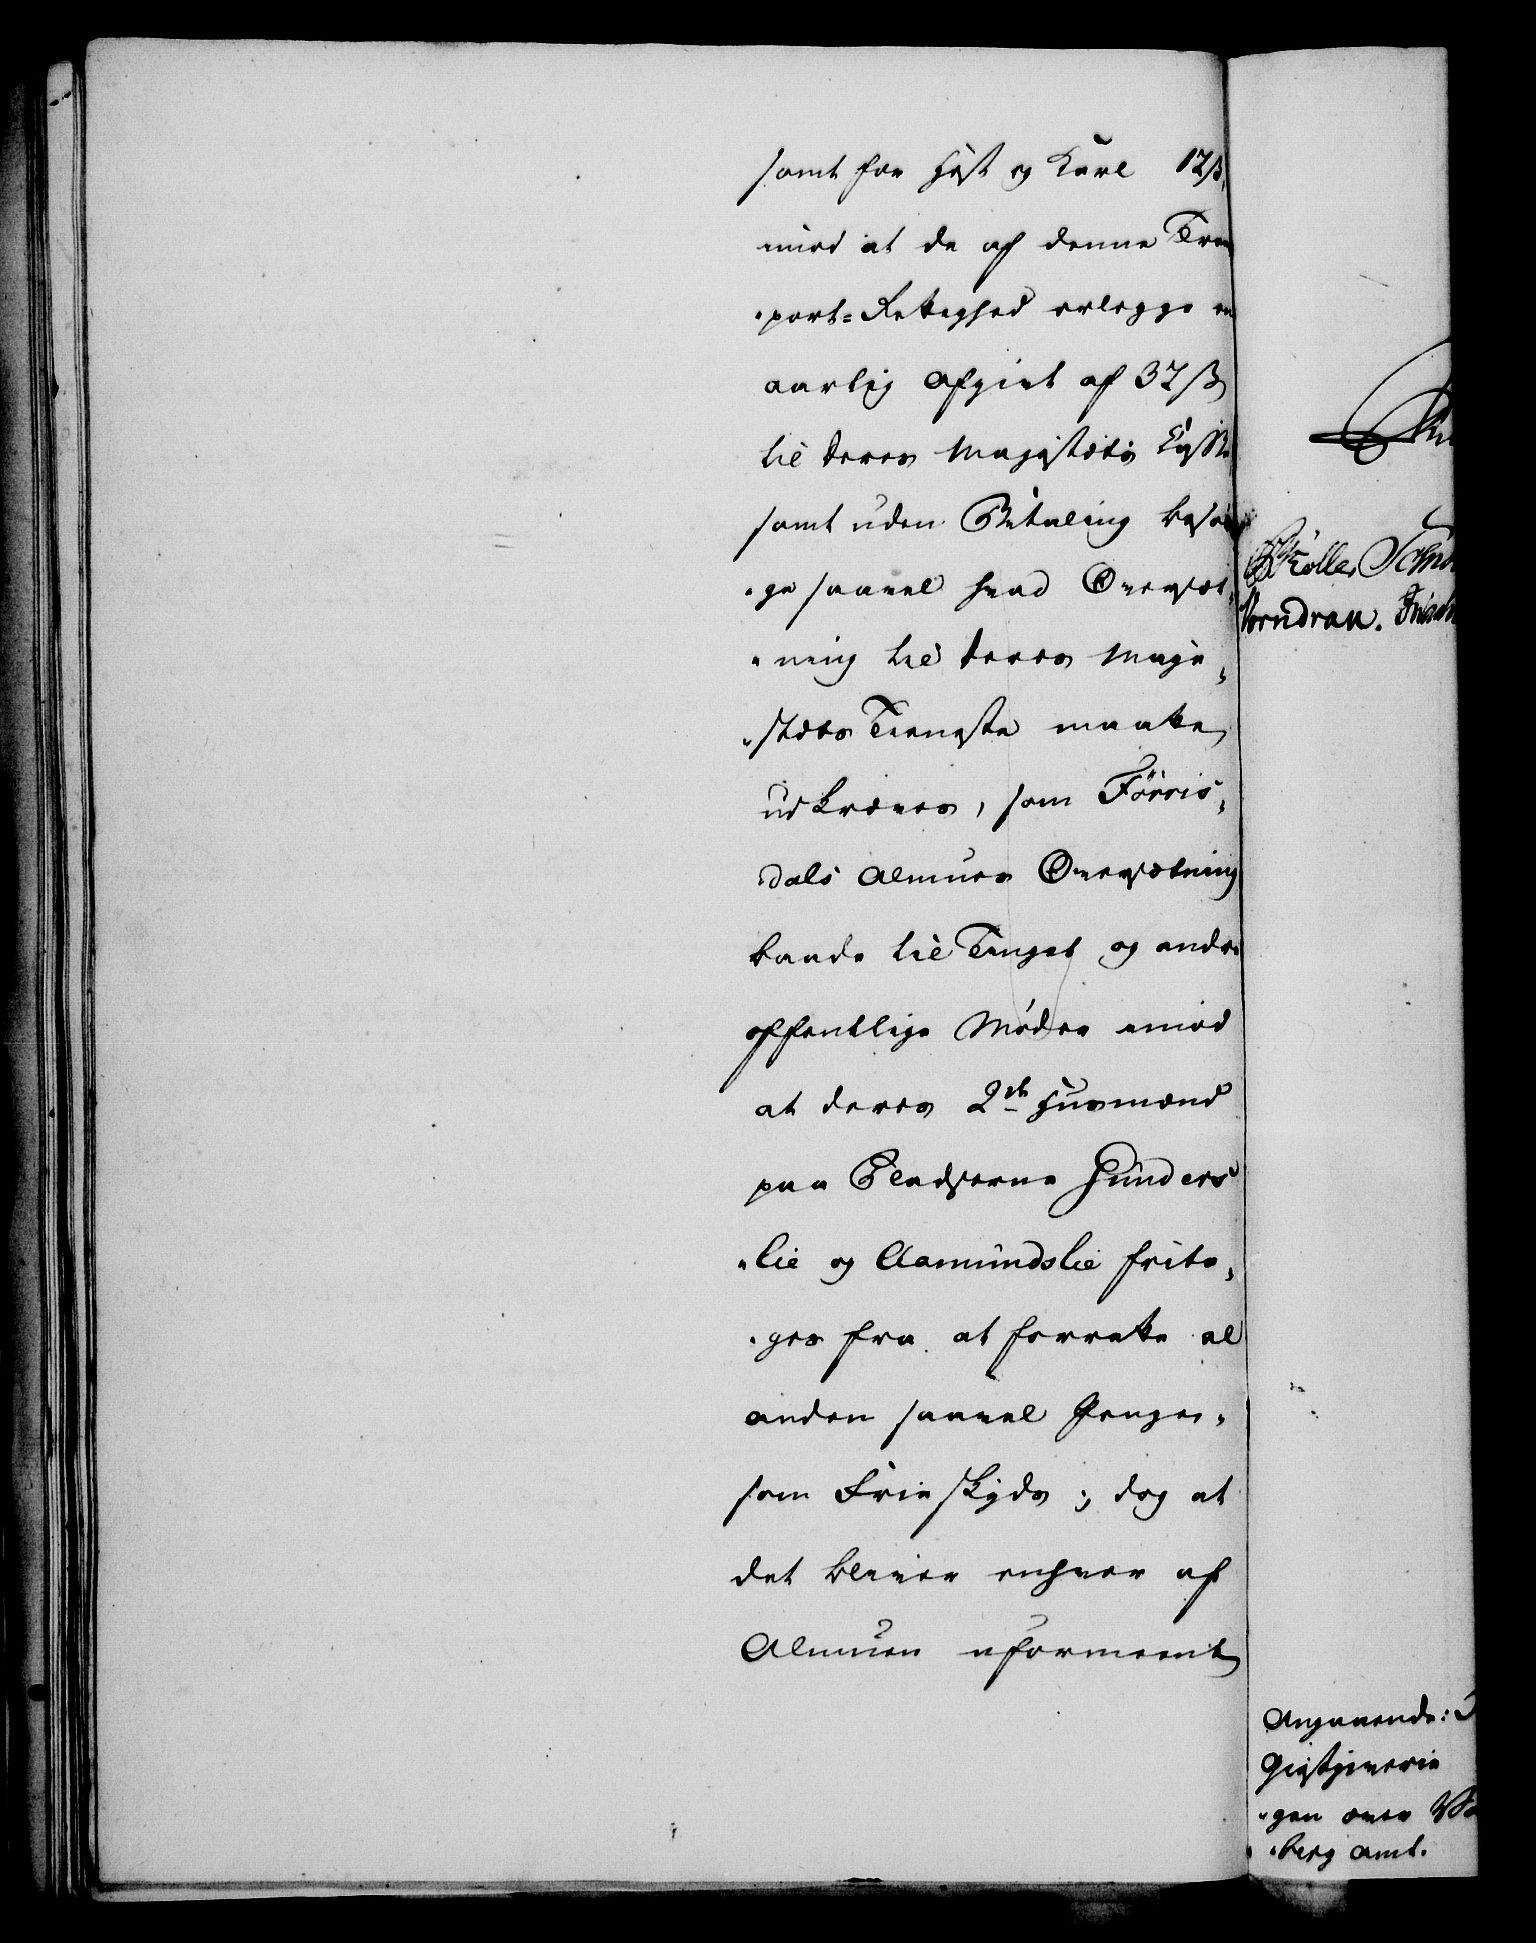 samt for Hest og Karl 12ß,
mod at de af denne Tran
port-Rettighed erlegge en
aarlig Afgivt af 32ß
til Deres Majestæts Kasse
samt uden Betaling besør
ge saavel hvad Oversæt
ning til Deres Maje
stæts Tieneste maatte
udkræves, som Förris
dals Almues Oversætning
baade til Tinget og andre
offentlige Møder imod
at deres 2de Husmænd
paa Pladserne Hunders
lie og Aamundslie frita
ges fra at forrette al
anden saavel Penge
som Frie Skyds; dog at
det bliver enhver af
Almuen uformeent
Kølle. Schm
Vorndran.
Angaaende:
Giestgiverie
gen over
berg Amt.